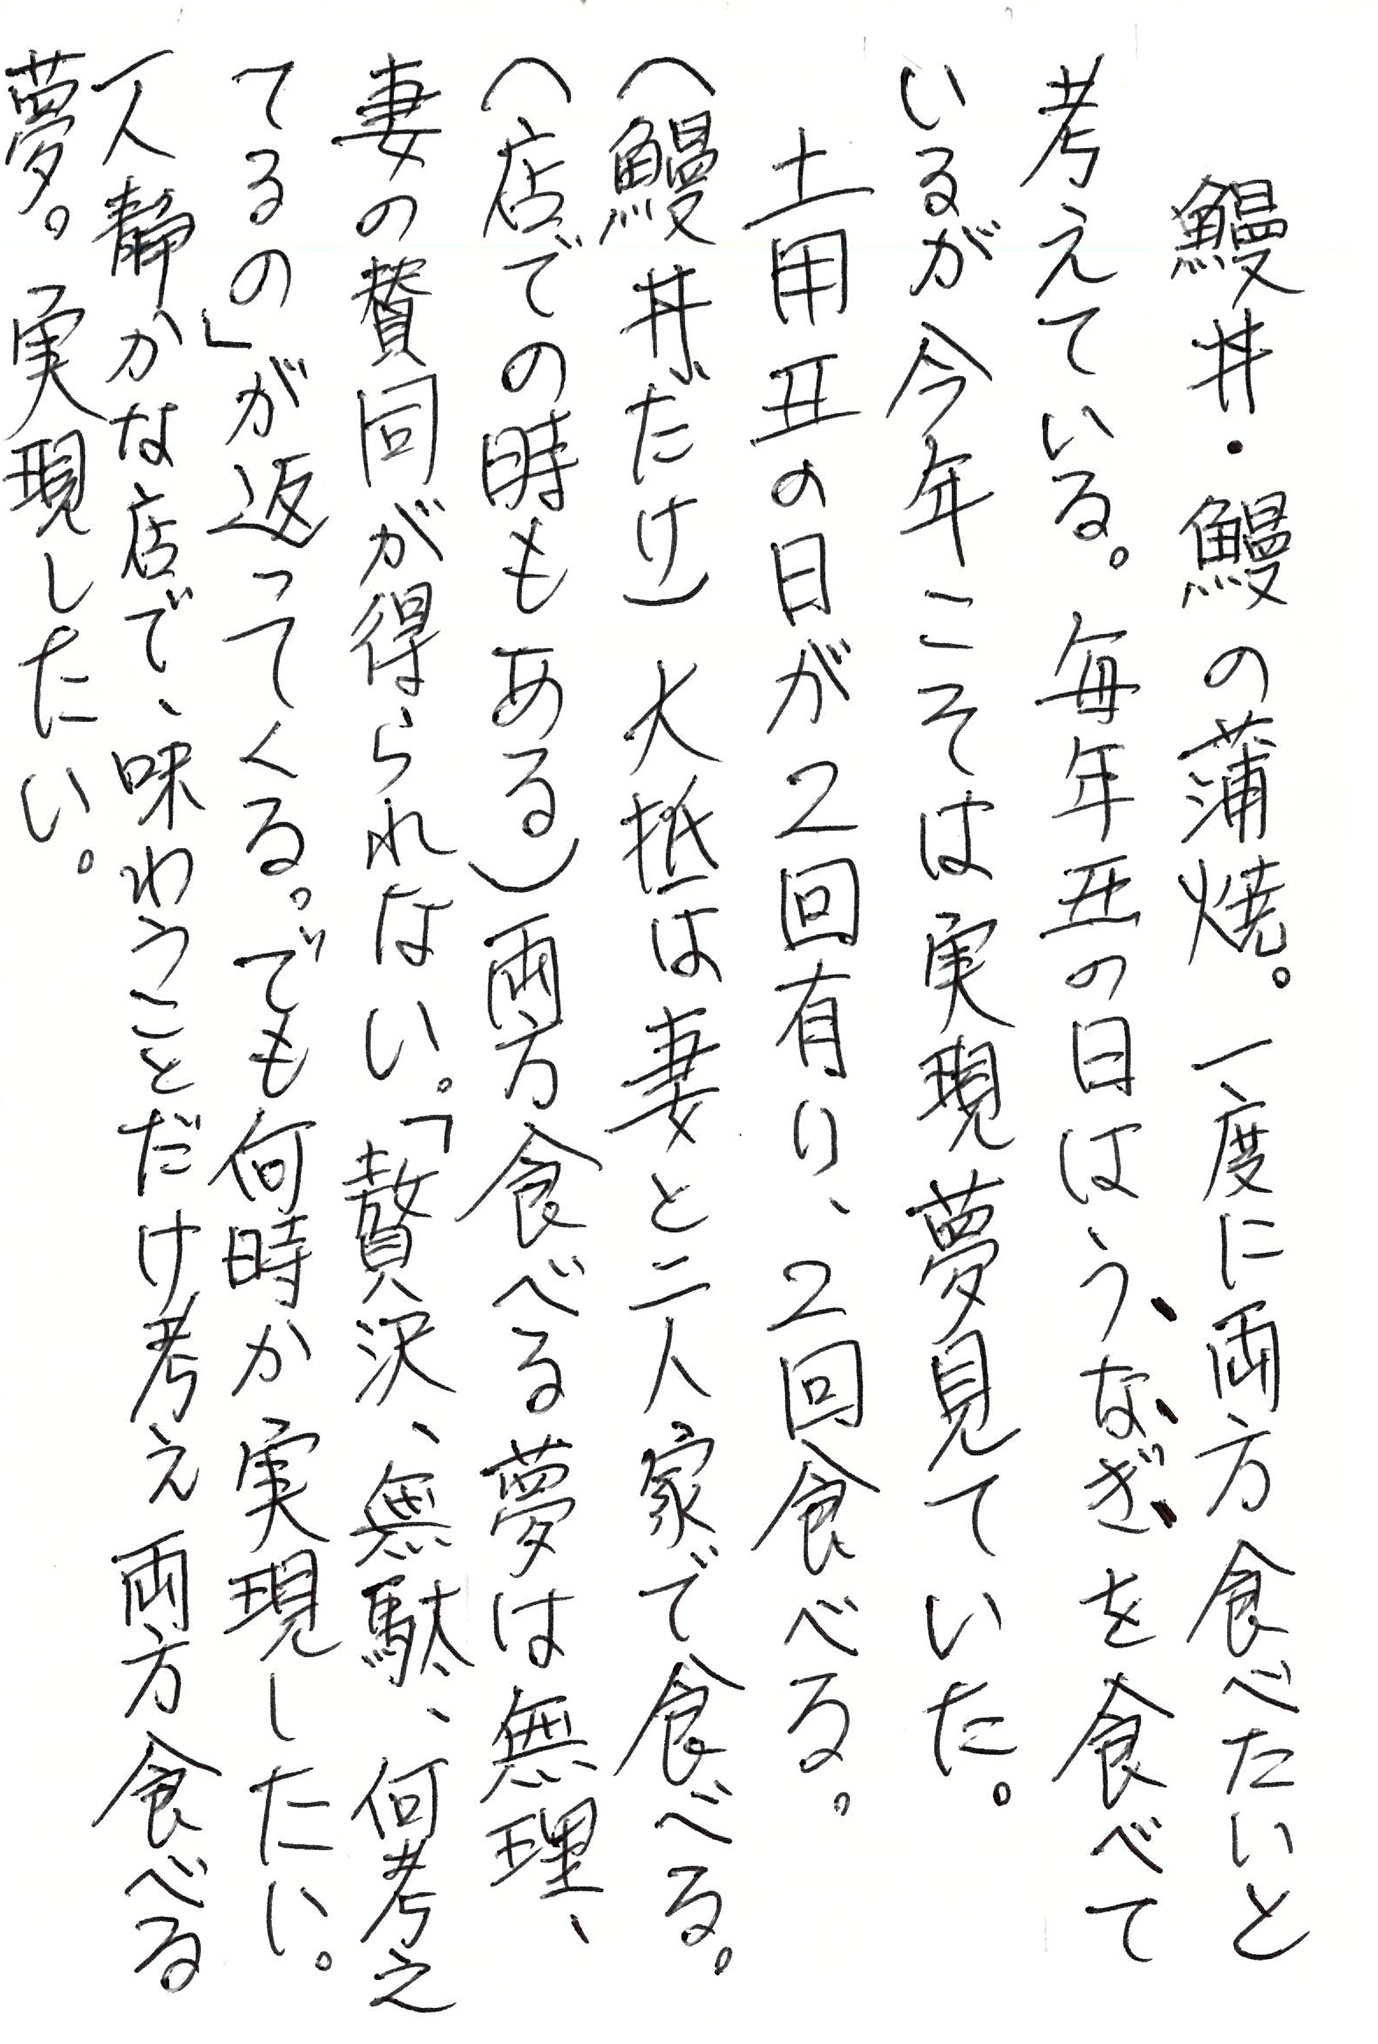 鰻丼・鰻の蒲焼。一度に両方食べたいと
考えている。毎年丑の日はうなぎを食べて
いるが今年こそは実現夢見ていた。
土用丑の日が2回有り、2回食べる。
(鰻丼だけ)大抵は妻と二人家で食べる。
(店での時もある)両方食べる夢は無理、
妻の賛同が得られない。「贅沢、無駄、何考え
てるの」が返ってくる。でも何時か実現したい。
一人静かな店で、味わうことだけ考え両方食べる
夢。実現したい。